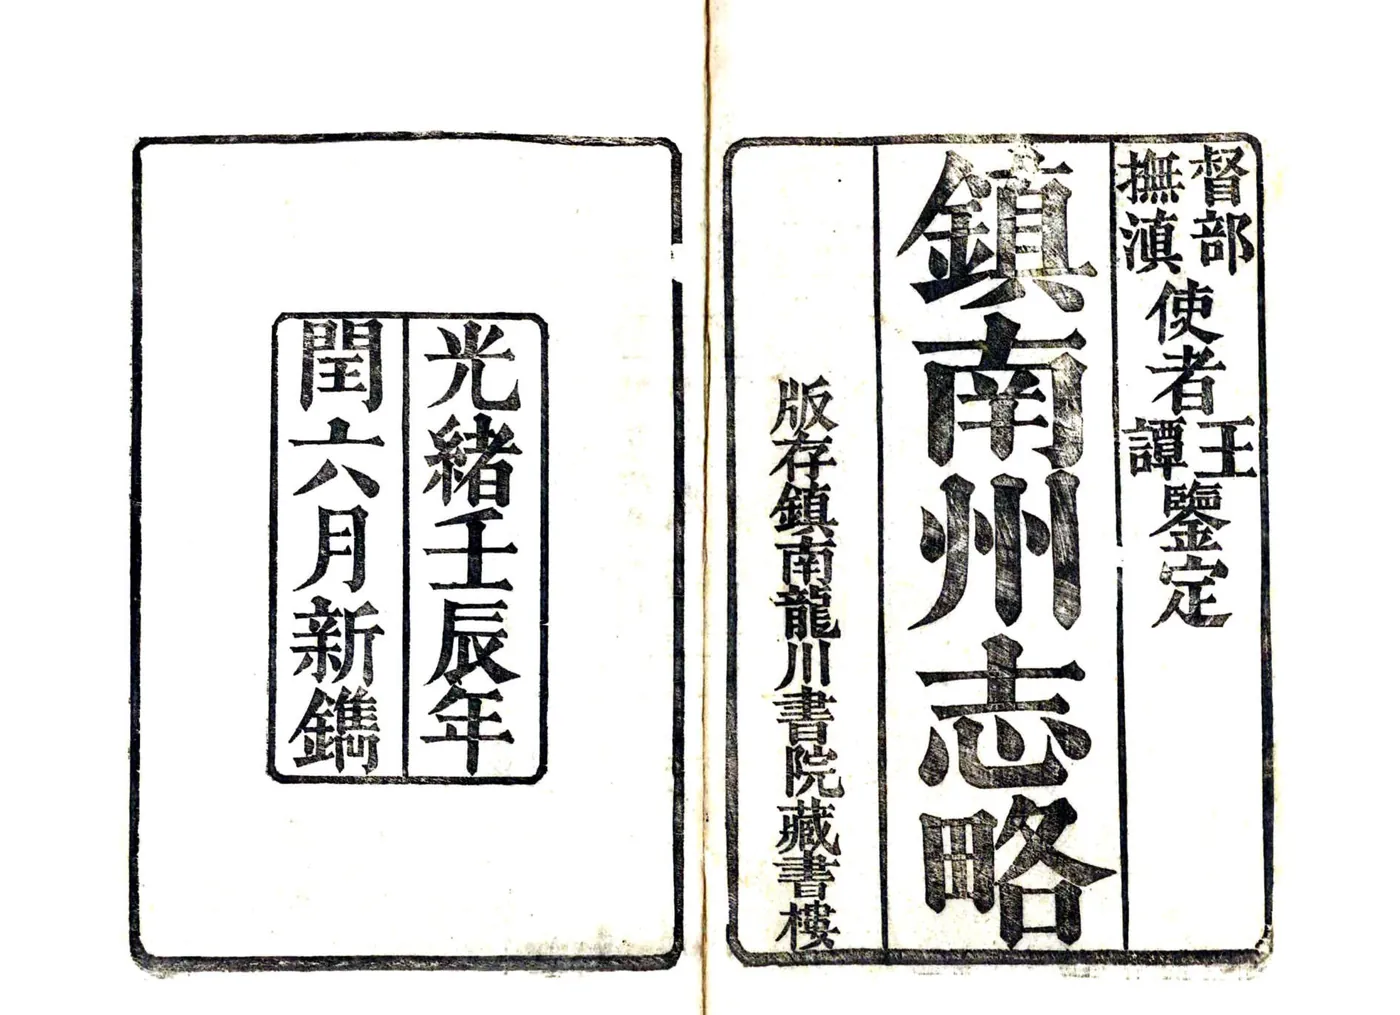 督部撫滇使者王譚鑒定
鎮南州志略
版存鎮南龍川書院藏書樓
光緒壬辰年
閏六月新鐫